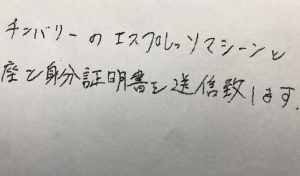 チンバリーのエスプレッソマシーンと
座で身分証明書を送信致します.